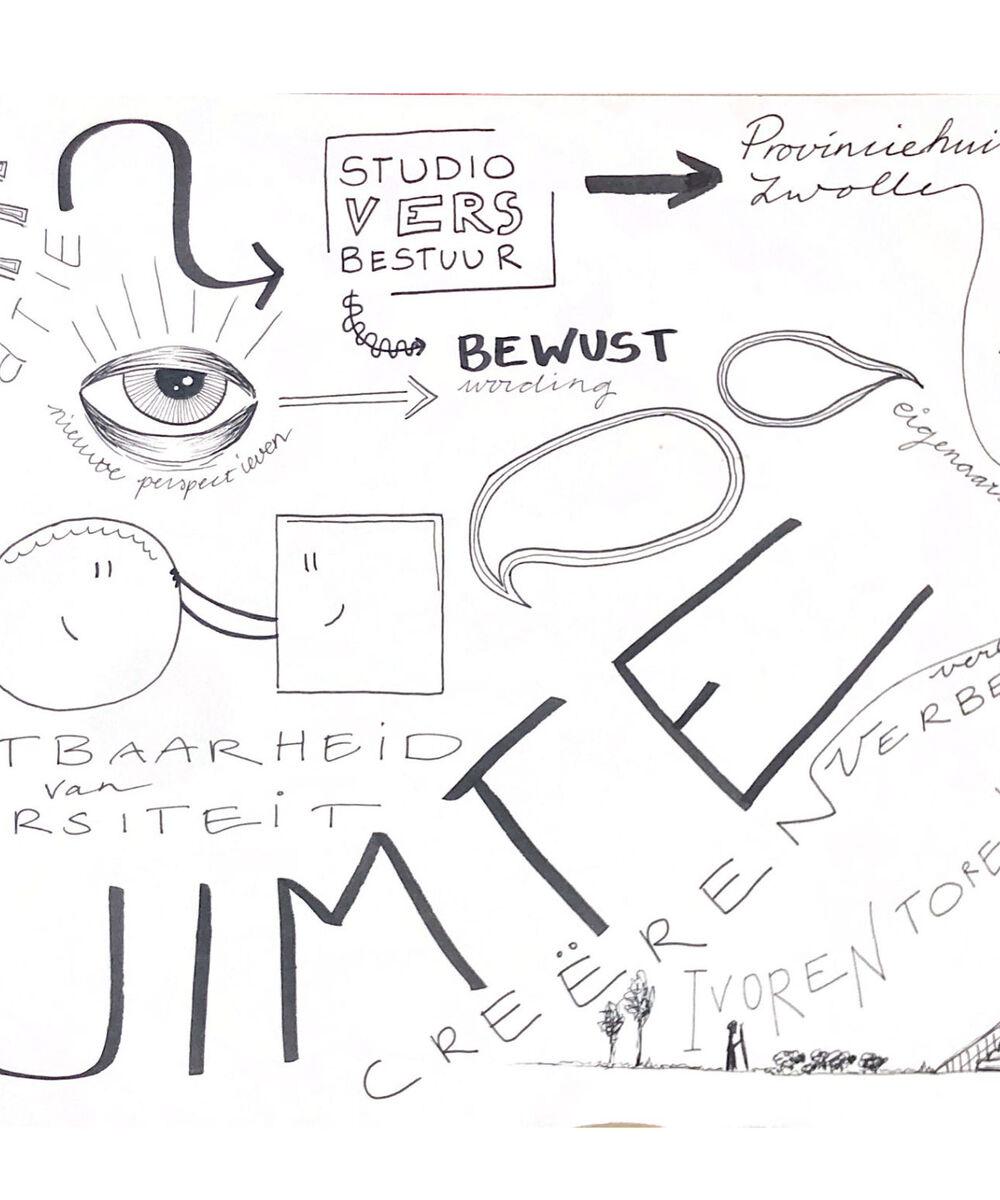 STUDIO
VERS
BESTUUR
Provinciehui
Zwolle
ATIE
BEWUST
wording
nieuwe perspectieven
eigenaar
TBAARHEID
van
RSITEIT
UIMTE
CREËREN
VERBE
IVOREN TORE